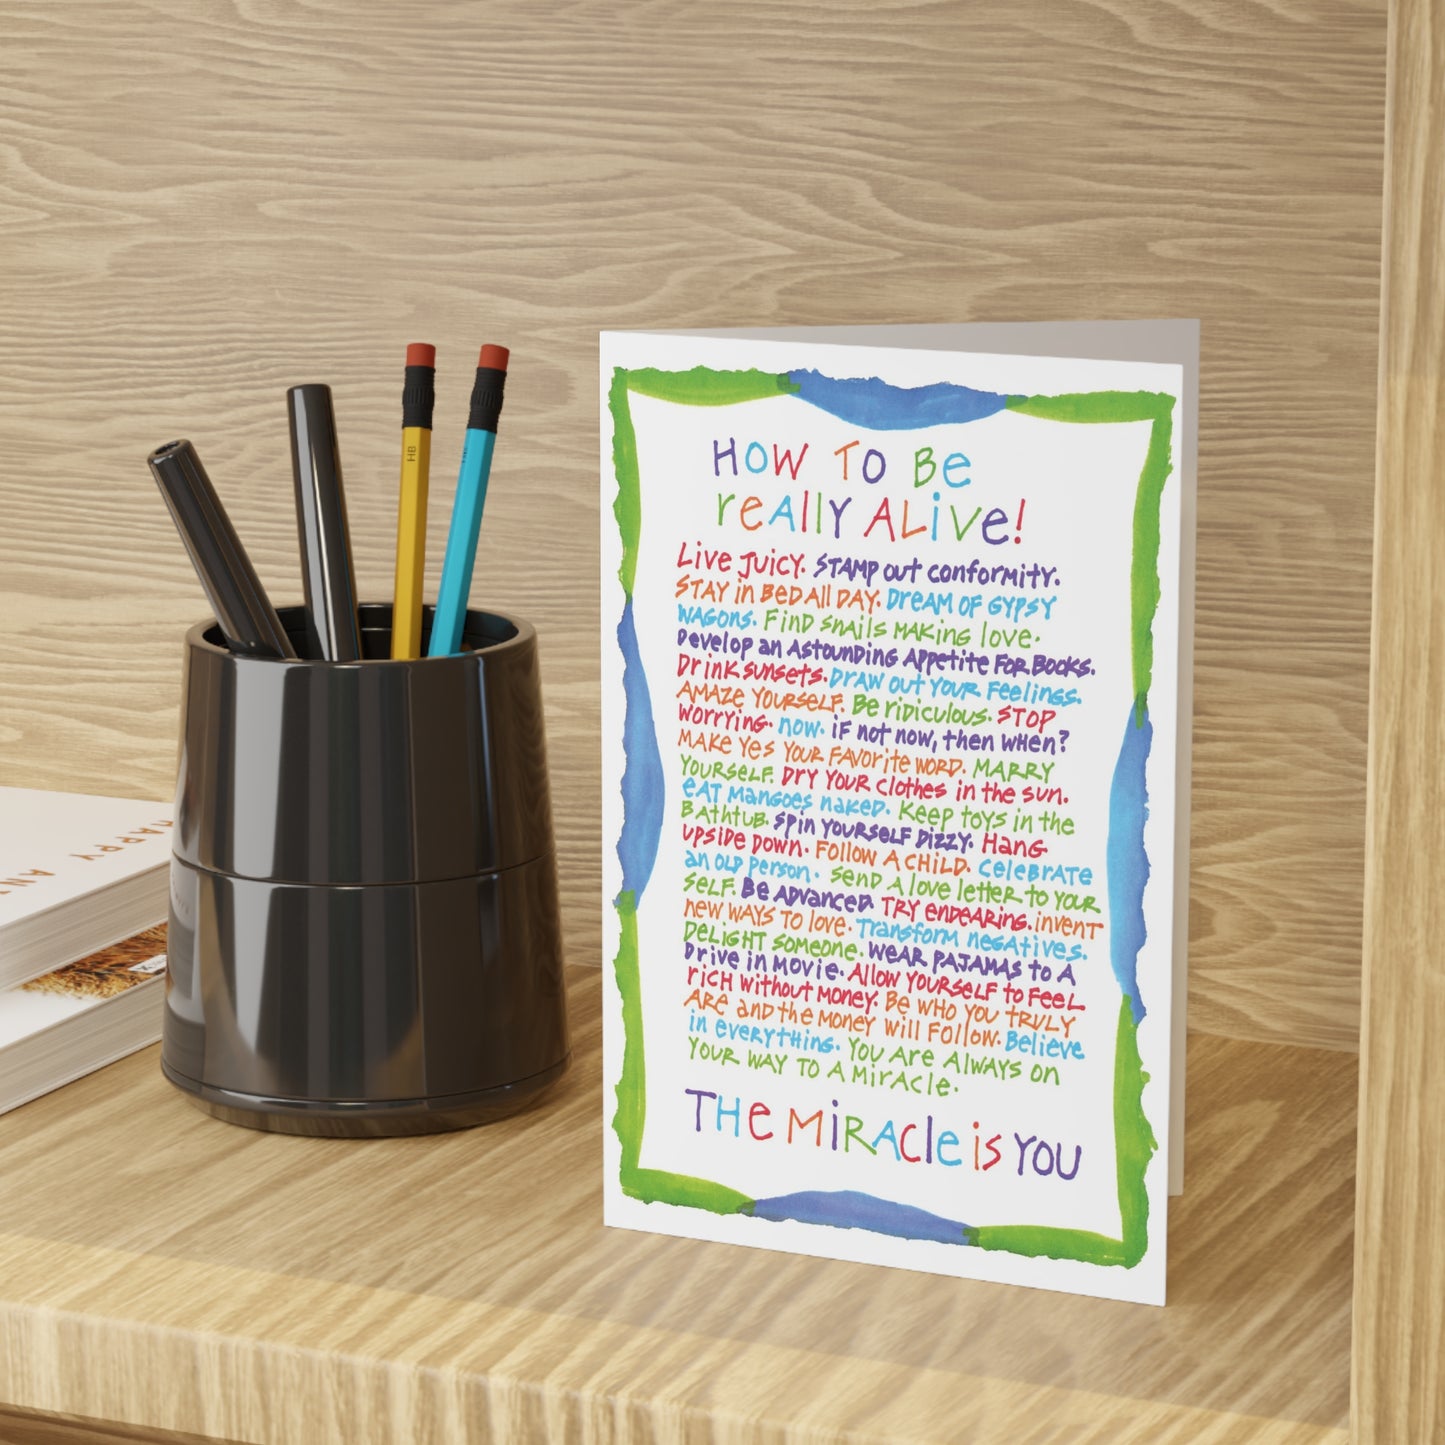 HOW TO Be
reAllY ALive!
Live JUICY. STAMP OUT CONFORMITY.
STAY in BED All DAY. DREAM OF GYPSY
WAGONS. FIND SNAILS MAKING love.
Develop an AstoUNDING Appetite FOR BOOKS.
Drink sunsets. DRAW OUT YOUR Feelings.
AMAZE YOURSELF. Be ridiculous. STOP
WORRYING. NOW. iF not now, then WHEN?
MAKE YES YOUR FAVORITE WORD. MARRY
YOURSELF. DRY YOUR Clothes in the sun.
eAT MANGOES NAKED. Keep toys in the
BATHTUB. SPIN YOURSELF DIZZY. HANG
UPSIDE DOWN. FOLLOW A CHILD. CELEBRATE
AN OLD PERSON. SEND A love letter to YOUR
SELF. Be ADVANCED. TRY ENDEARING. INVENT
NEW WAYS TO LOVE. TRANSFORM NEGATIVES.
DELIGHT SOMEONE. WEAR PAJAMAS to A
DRIVE in MOVIE. Allow YOURSELF to FEEL
RICH WITHOUT MONEY. Be WHO YOU TRULY
ARE and the MONEY will FOLLOW. Believe
in EVERYTHING. YOU ARE ALWAYS ON
YOUR WAY TO A MIRACLE.
THE MIRACLE iS YOU
HB
HAPPY ANT